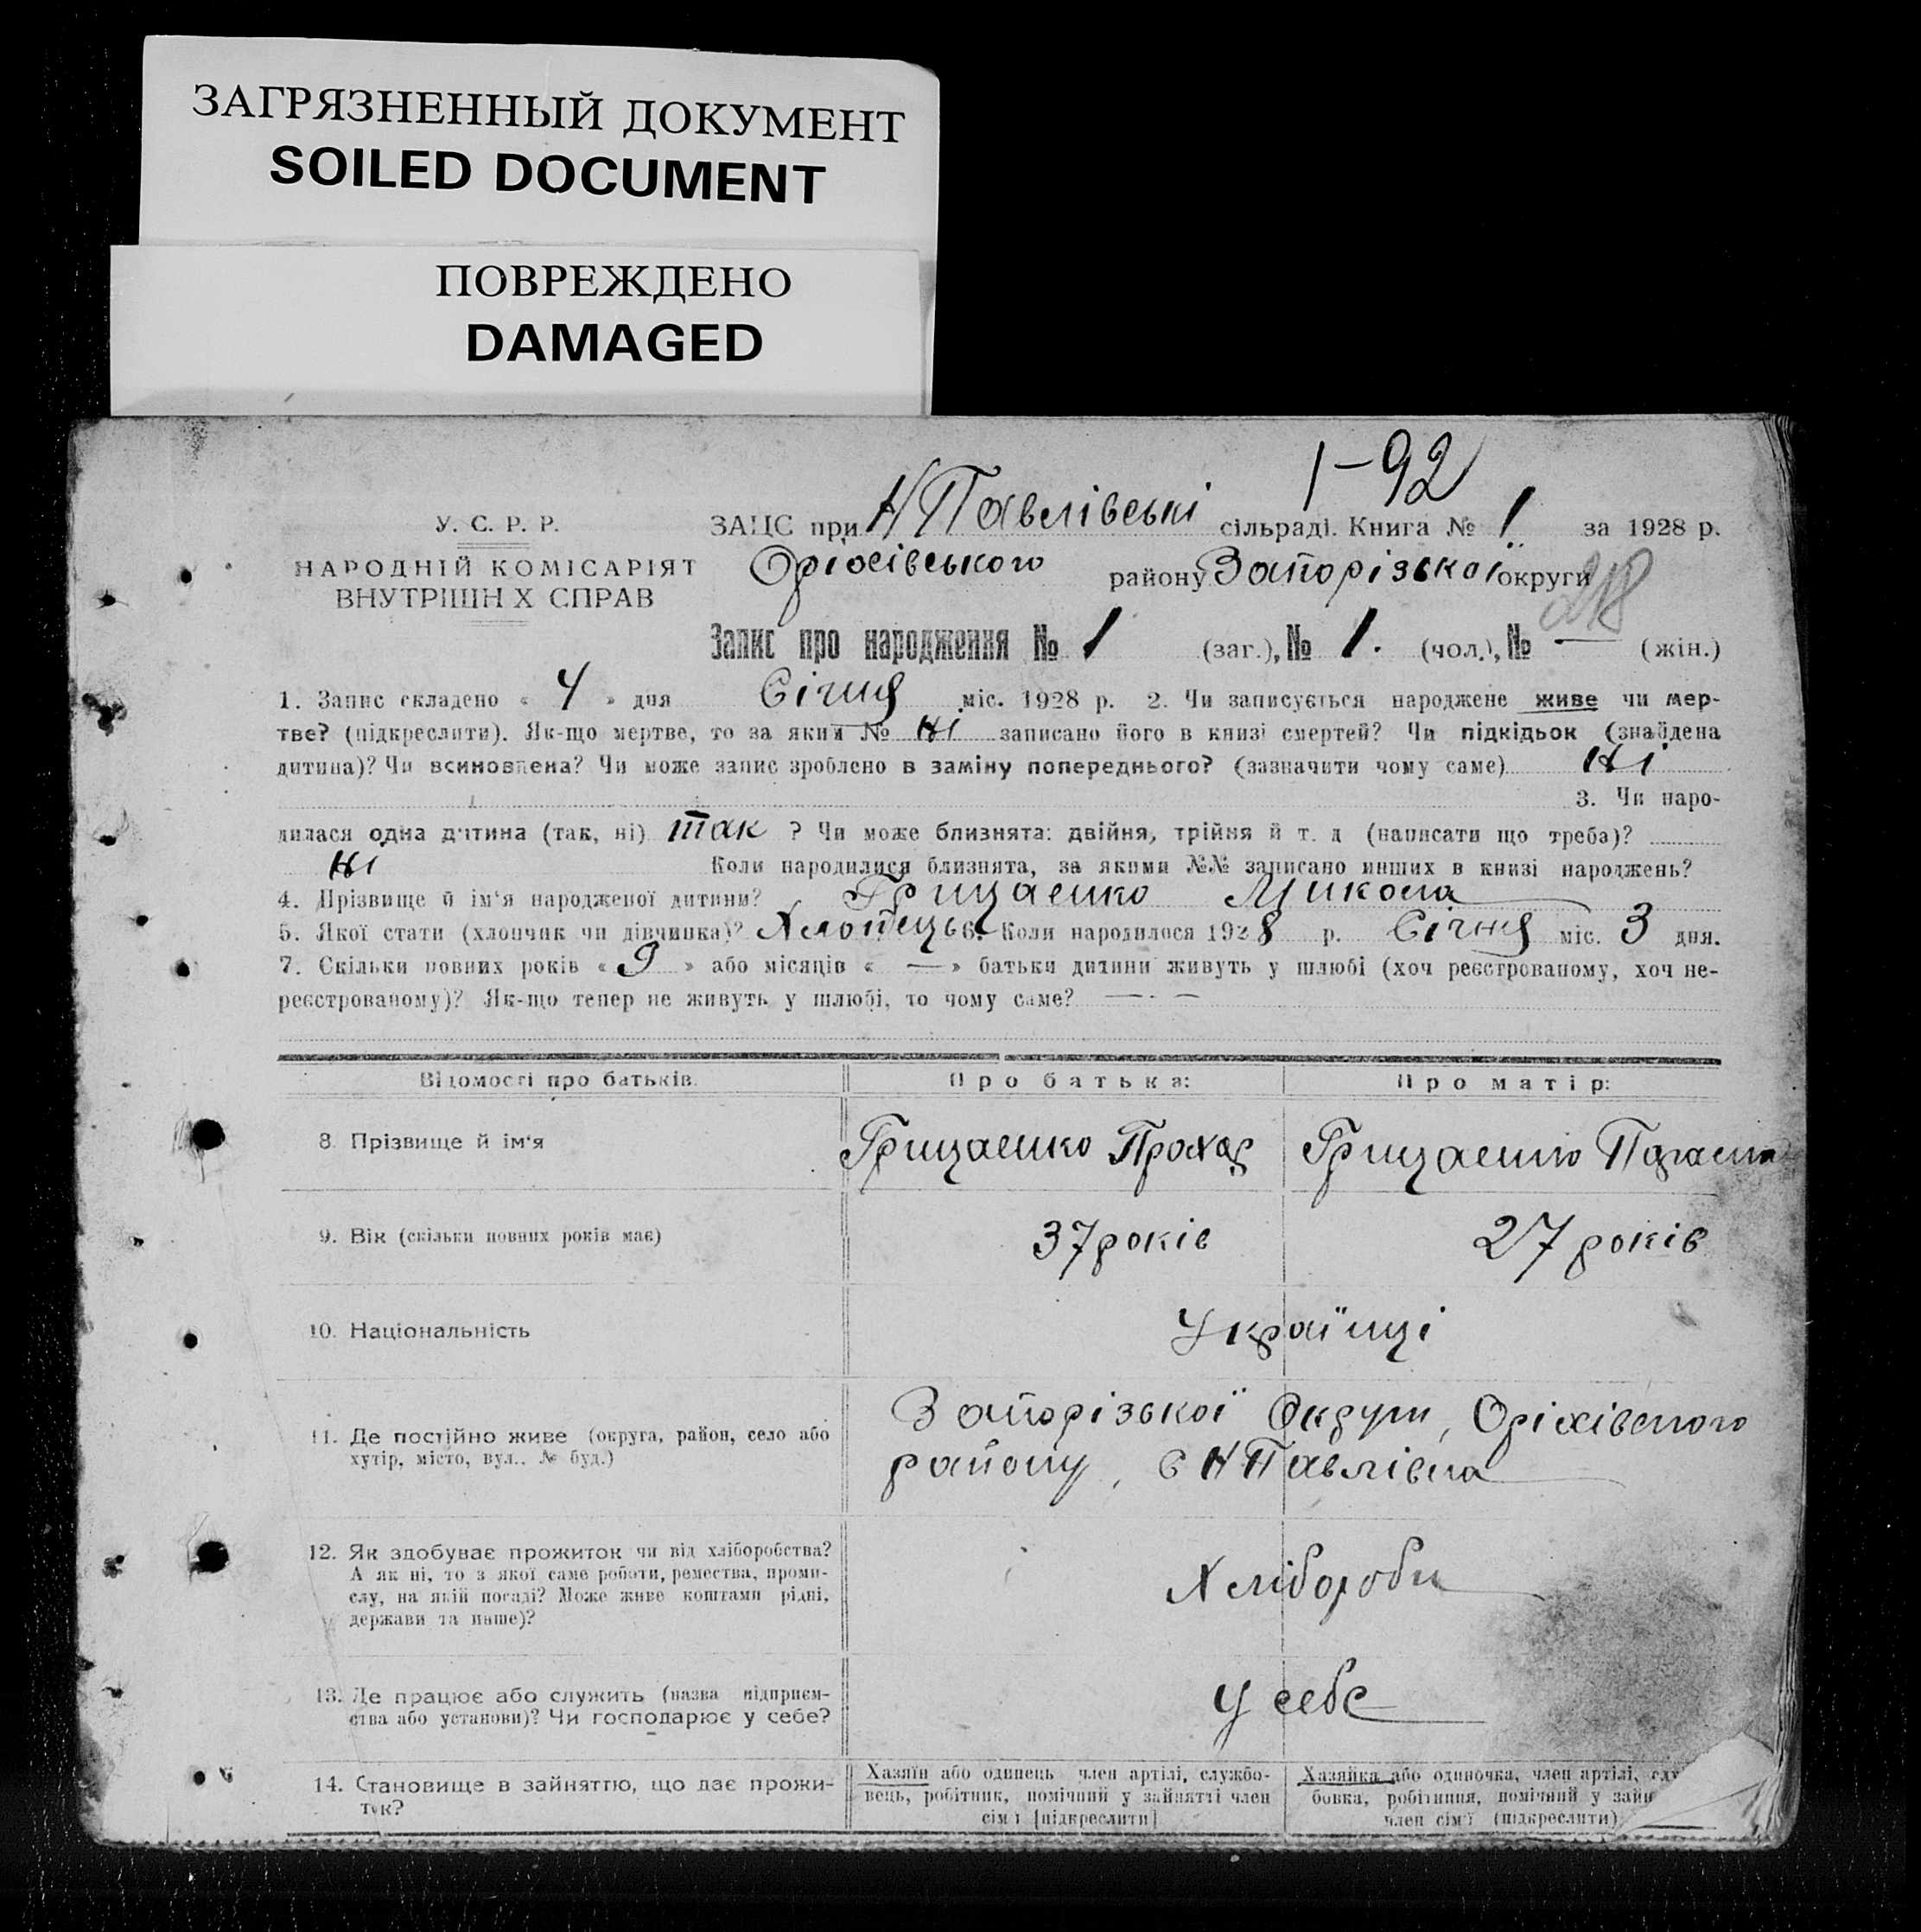 ЗАГРЯЗНЕННЫЙ ДОКУМЕНТ
SOILED DOCUMENT
ПОВРЕЖДЕНО
DAMAGED
1-92
У. С. Р. Р.
НАРОДНІЙ КОМІСАРІЯТ
ВНУТРІШН Х СПРАВ
ЗАЦС при Н Павлівські сільраді. Книга № 1 за 1928 р.
Оріхівського району Запорізької округи
218
Запис про народження № 1 (заг.), № 1. (чол.), № — (жін.)
1. Запис складено « 4 » дня Січня міс. 1928 р. 2. Чи записується народжене живе чи мер-
тве? (підкреслити). Як-що мертве, то за яким № Ні записано його в книзі смертей? Чи підкідьок (знайдена
дитина)? Чи всиновлена? Чи може запис зроблено в заміну попереднього? (зазначити чому саме) Ні
3. Чи наро-
дилася одна дитина (так, ні) так ? Чи може близнята: двійня, трійня й т. д (написати що треба)?
Ні Коли народилися близнята, за якими №№ записано инших в книзі народжень?
4. Прізвище й ім'я народженої дитини? Грицаенко Микола
5. Якої стати (хлопчик чи дівчинка)? Хлопець 6. Коли народилося 1928 р. Січня міс. 3 дня.
7. Скільки повних років « 9 » або місяців « — » батьки дитини живуть у шлюбі (хоч реєстрованому, хоч не-
реєстрованому)? Як-що тепер не живуть у шлюбі, то чому саме? — · —
Відомості про батьків. Про батька: Про матір:
8. Прізвище й ім'я Грицаенко Прохар Грицаенко
9. Вік (скільки повних років має) 37 років 27 років
10. Національність Українці
11. Де постійно живе (округа, район, село або
хутір, місто, вул.. № буд.)
Запорізької Округи, Оріхівського
району, с Н Павлівка
12. Як здобуває прожиток чи від хліборобства?
А як ні, то з якої саме роботи, ремества, проми-
слу, на якій посаді? Може живе коштами рідні,
держави та инше)?
Хлібороби
13. Де працює або служить (назва підприєм-
ства або установи)? Чи господарює у себе?
У себе
14. Становище в зайняттю, що дає прожи-
ток?
Хазяїн або одинець член артілі, службо-
вець, робітник, помічний у зайнятті член
сім'ї [підкреслити]
Хазяйка або одиночка, член артілі, слу
бовка, робітниця, помічний у зайн
член сім'ї (підкреслити)